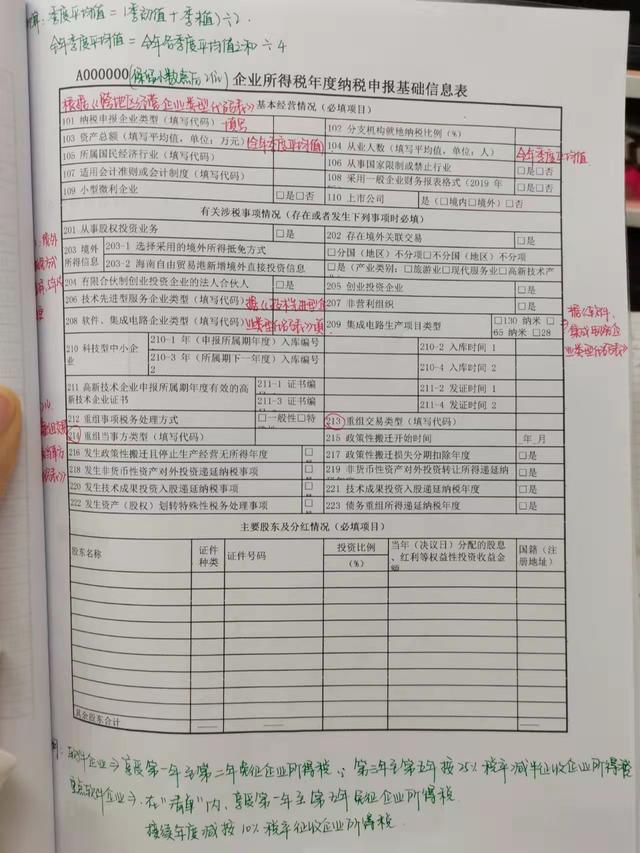 季度平均值=(季初值+季末值)÷2.
全年季度平均值=全年各季度平均值之和÷4
A000000(保留小数点后2位) 企业所得税年度纳税申报基础信息表
根据《跨地区经营企业类型代码表》 基本经营情况（必填项目）
101 纳税申报企业类型（填写代码） 填写 102 分支机构就地纳税比例（%）
103 资产总额（填写平均值，单位：万元） (全年季度平均值) 104 从业人数（填写平均值，单位：人） 全年季度平均值
105 所属国民经济行业（填写代码） 106 从事国家限制或禁止行业 □是□否
107 适用会计准则或会计制度（填写代码） 108 采用一般企业财务报表格式（2019 年 □是□否
109 小型微利企业 □是□否 110 上市公司 是（□境内□境外）□否
有关涉税事项情况（存在或者发生下列事项时必填）
201 从事股权投资业务 □是 202 存在境外关联交易 □是
203 境外所得信息 203-1 选择采用的境外所得抵免方式 □分国（地区）不分项□不分国（地区）不分项
203-2 海南自由贸易港新增境外直接投资信息 □是（产业类别：□旅游业□现代服务业□高新技术产
204 有限合伙制创业投资企业的法人合伙人 □是 205 创业投资企业 □是
206 技术先进型服务企业类型（填写代码） 207 非营利组织 □是
208 软件、集成电路企业类型（填写代码） 209 集成电路生产项目类型 □130 纳米 □65 纳米 □28
210 科技型中小企业 210-1 年（申报所属期年度）入库编号 210-2 入库时间 1
210-3 年（所属期下一年度）入库编号 2 210-4 入库时间 2
211 高新技术企业申报所属期年度有效的高新技术企业证书 211-1 证书编 211-2 发证时间 1
211-3 证书编 211-4 发证时间 2
212 重组事项税务处理方式 □一般性□特 213 重组交易类型（填写代码）
214 重组当事方类型（填写代码） 215 政策性搬迁开始时间 _年_月
216 发生政策性搬迁且停止生产经营无所得年度 □ 217 政策性搬迁损失分期扣除年度 □是
218 发生非货币性资产对外投资递延纳税事项 □ 219 非货币性资产对外投资转让所得递延纳 □是
220 发生技术成果投资入股递延纳税事项 □ 221 技术成果投资入股递延纳税年度 □是
222 发生资产（股权）划转特殊性税务处理事项 □ 223 债务重组所得递延纳税年度 □是
主要股东及分红情况（必填项目）
股东名称 证件种类 证件号码 投资比例（%） 当年（决议日）分配的股息、红利等权益性投资收益金额 国籍（注册地址）
其余股东合计
软件企业⇒享受第一年至第二年免征企业所得税；第三年至第五年按25%税率减半征收企业所得税
重点软件企业⇒.在"清单"内,享受第一年至第五年免征企业所得税
接续年度减按10%税率征收企业所得税